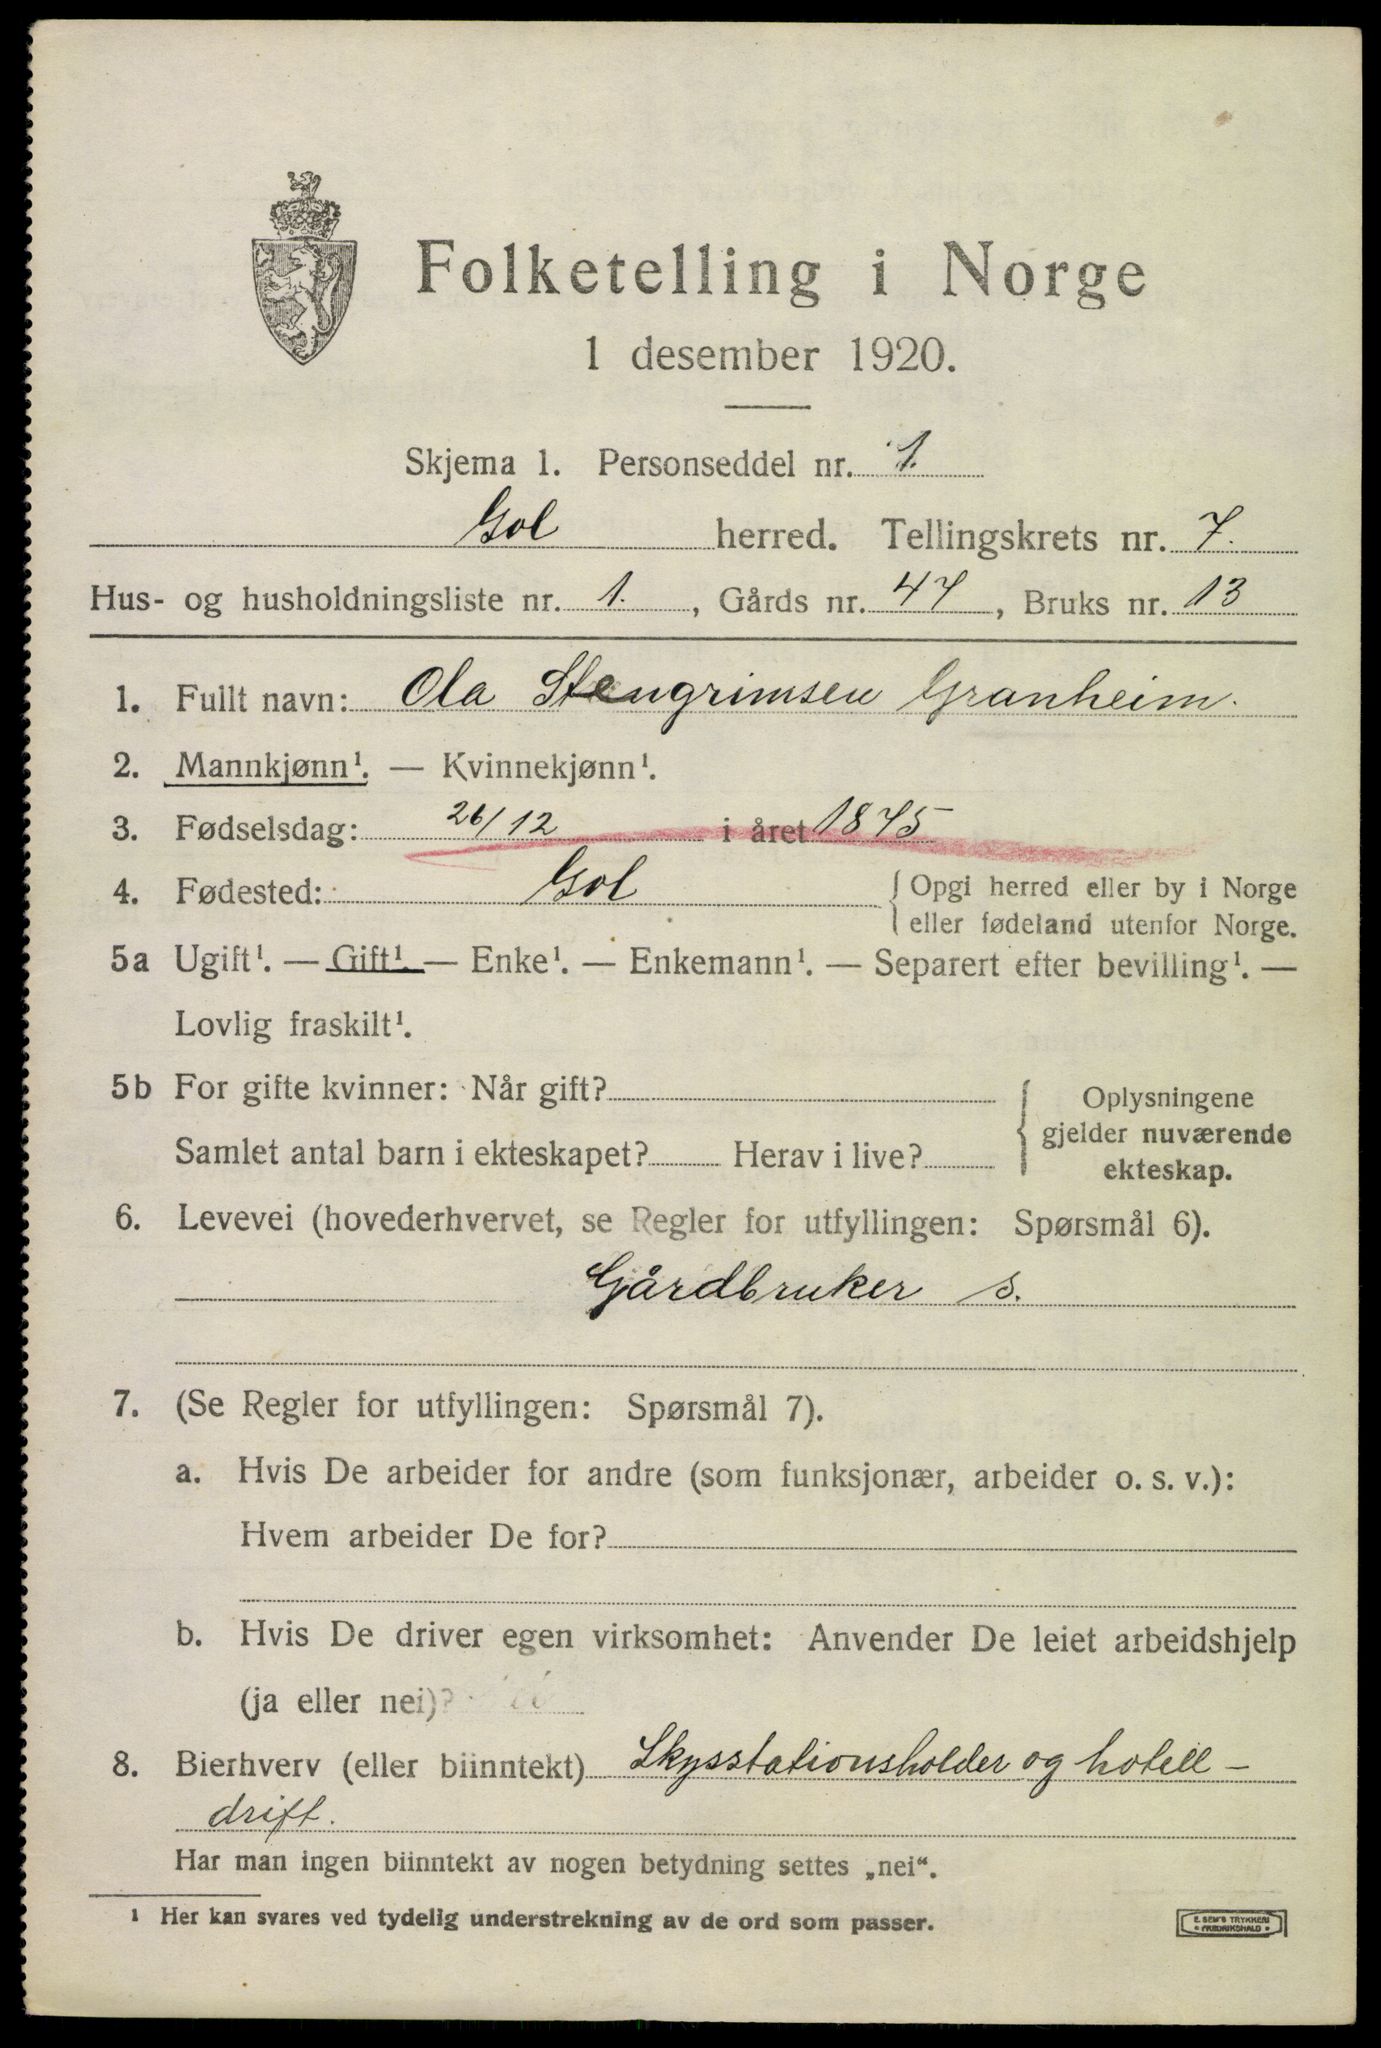 Folketelling i Norge
1 desember 1920.
Skjema 1. Personseddel nr. 1.
Gol herred. Tellingskrets nr. 7.
Hus- og husholdningsliste nr. 1., Gårds nr. 47, Bruks nr. 13
1. Fullt navn: Ola Stengrimsen Granheim.
2. Mannkjønn¹. — Kvinnekjønn¹.
3. Fødselsdag: 26/12 i året 1875
4. Fødested: Gol { Opgi herred eller by i Norge
eller fødeland utenfor Norge.
5a Ugift¹. — Gift¹. — Enke¹. — Enkemann¹. — Separert efter bevilling¹. —
Lovlig fraskilt¹.
5b For gifte kvinner: Når gift?
Samlet antal barn i ekteskapet? Herav i live?
Oplysningene
gjelder nuværende
ekteskap.
6. Levevei (hovederhvervet, se Regler for utfyllingen: Spørsmål 6).
Gårdbruker s.
7. (Se Regler for utfyllingen: Spørsmål 7).
a. Hvis De arbeider for andre (som funksjonær, arbeider o. s. v.):
Hvem arbeider De for?
b. Hvis De driver egen virksomhet: Anvender De leiet arbeidshjelp
(ja eller nei)?
8. Bierhverv (eller biinntekt) Skysstationsholder og hotell-
drift.
Har man ingen biinntekt av nogen betydning settes „nei“.
¹ Her kan svares ved tydelig understrekning av de ord som passer.
E. SEM'S TRYKKERI
FREDRIKSHALD